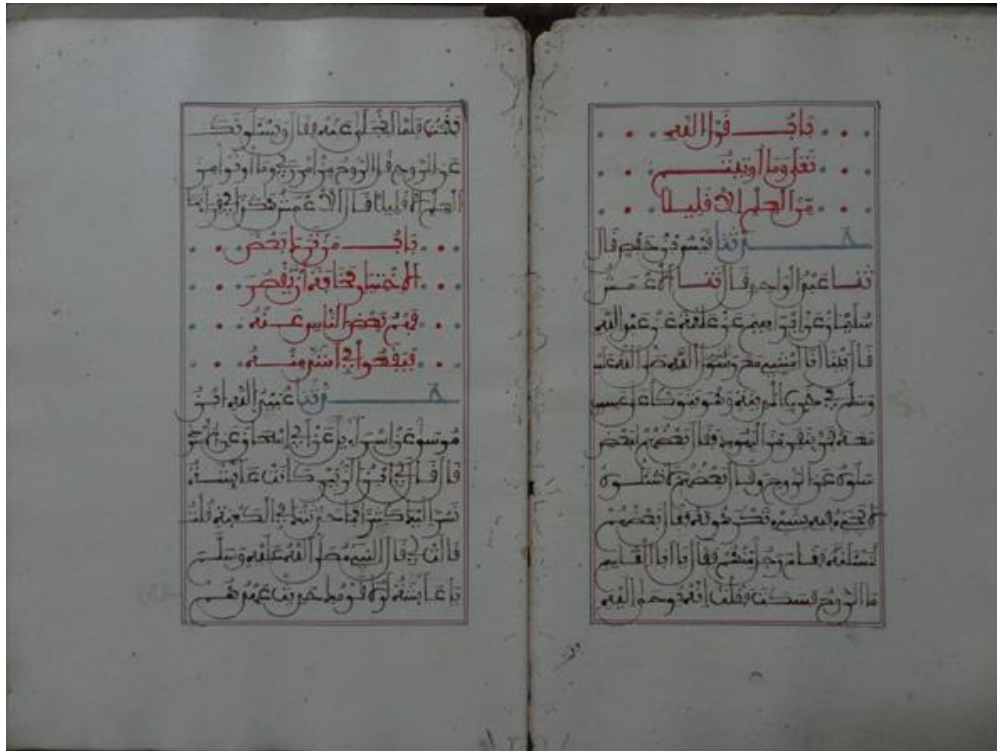 باب قول الله
تعلى وما أوتيتم
من العلم إلا قليلا
حدثنا قيس بن حفص قال
ثنا عبد الواحد قال ثنا الأعمش
سليمان عن إبراهيم عن علقمة عن عبد الله
قال بينا أنا أمشي مع رسول الله صلى الله عليه
وسلم في خرب المدينة وهو يتوكأ على عسيب
معه فمر بنفر من اليهود فقال بعضهم لبعض
سلوه عن الروح وقال بعضهم لا تسئلوه
لا يجيء فيه بشيء تكرهونه فقال بعضهم
لنسئلنه فقام رجل منهم فقال يا أبا القاسم
ما الروح فسكت فقلت إنه يوحى إليه
فقمت فلما انجلى عنه فقال ويسئلونك
عن الروح قل الروح من أمر ربي وما أوتوا من
العلم إلا قليلا قال الأعمش هكذا في قراءتنا
باب من ترك بعض
الاختيار مخافة أن يقصر
فهم بعض الناس عنه
فيقعوا في أشد منه
حدثنا عبيد الله ابن
موسى عن إسرائيل عن أبي إسحاق عن الأسود
قال قال لي ابن الزبير كانت عائشة
تسر إليك كثيرا فما حدثتك في الكعبة قلت
قالت لي قال النبي صلى الله عليه وسلم
يا عائشة لولا قومك حديث عهدهم